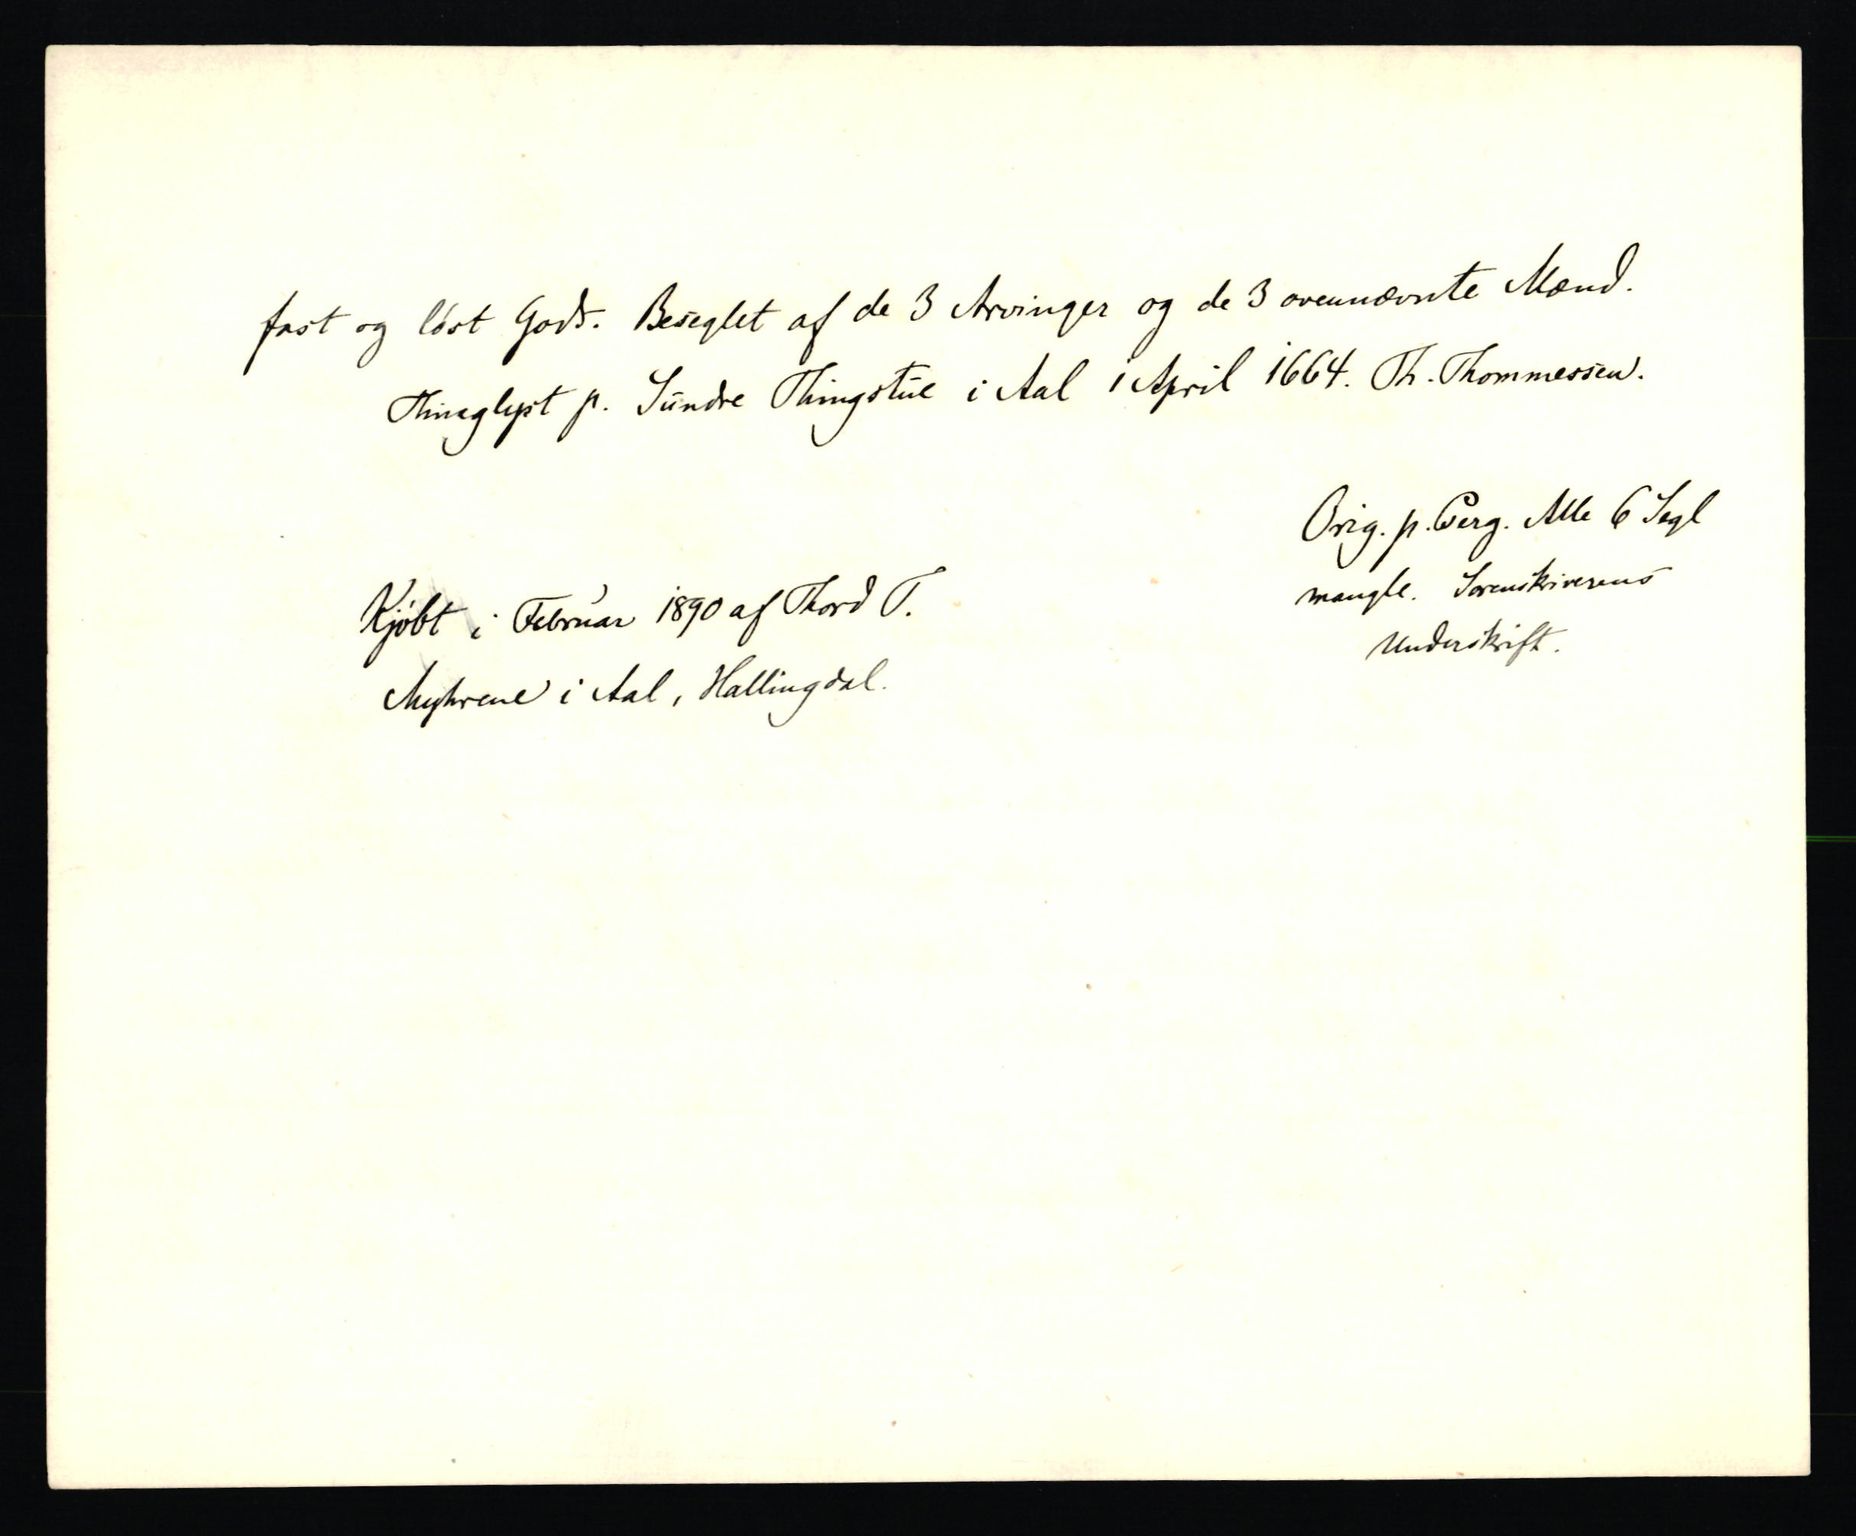 fast og löst Gods. Beseglet af de 3 Arvinger og de 3 ovennævnte Mænd.
Thinglyst p. Sundre Thingstue i Aal i April 1664. Th. Thommessen.
Orig. p. Perg. Alle 6 Segl
mangle. Sorenskriverens
Underskrift.
Kjøbt i Februar 1890 af Thord T.
Myhrene i Aal, Hallingdal.